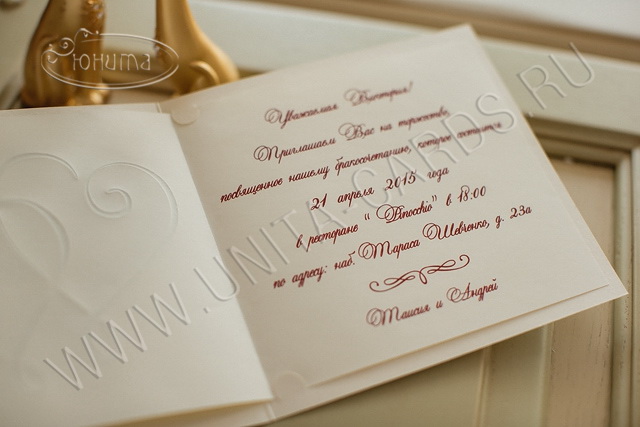 Юнита
Уважаемая Виктория!
Приглашаем Вас на торжество,
посвященное нашему бракосочетанию, которое состоится
21 апреля 2015 года
в ресторане " Pinocchio" в 18:00
по адресу: наб. Тараса Шевченко, д. 23а
Таисия и Андрей
WWW.UNITA-CARDS.RU